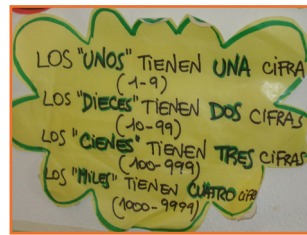 LOS "UNOS" TIENEN UNA CIFRA
(1-9)
LOS "DIECES" TIENEN DOS CIFRAS
(10-99)
LOS "CIENES" TIENEN TRES CIFRAS
(100-999)
LOS "MILES" TIENEN CUATRO CIFRAS
(1000-9999)